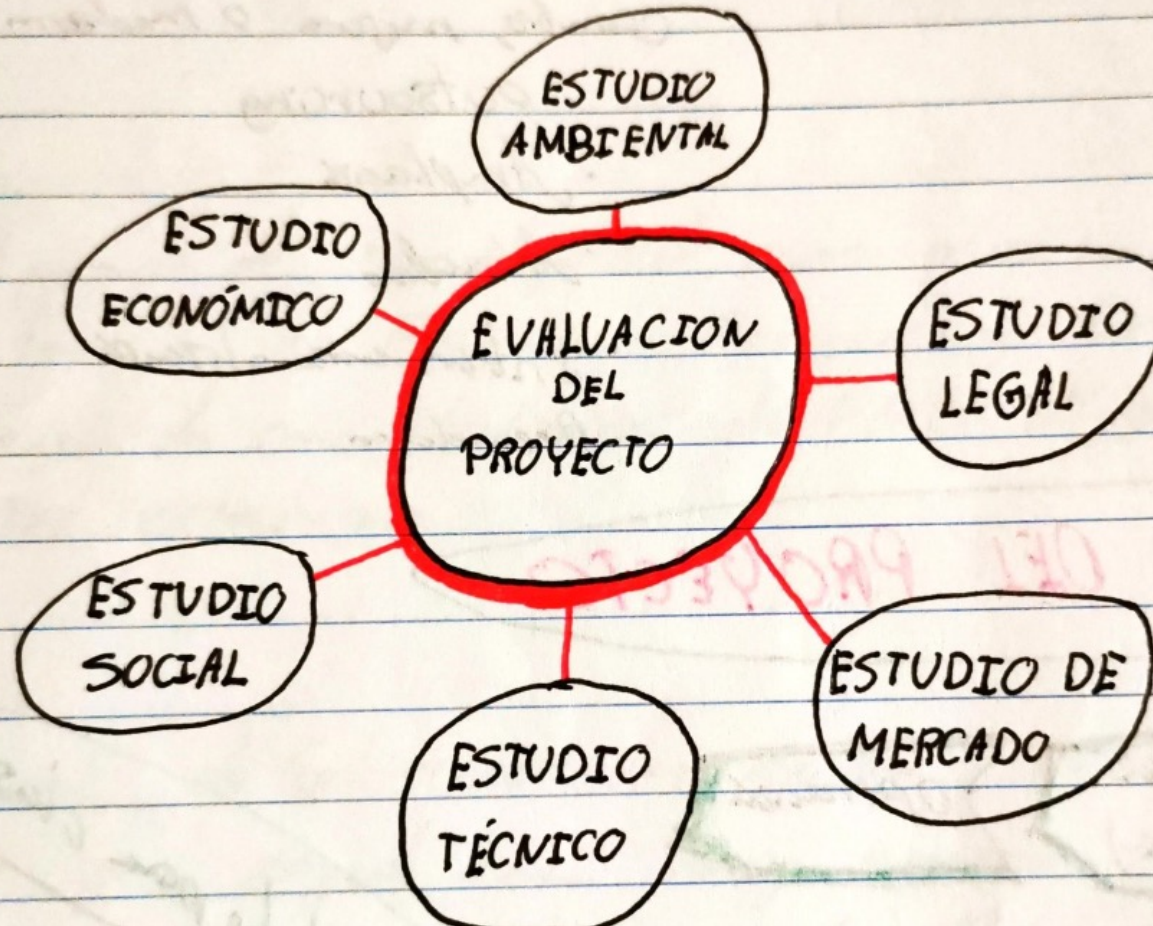 ESTUDIO
AMBIENTAL
ESTUDIO
ECONÓMICO
EVALUACION
DEL
PROYECTO
ESTUDIO
LEGAL
ESTUDIO
SOCIAL
ESTUDIO
TÉCNICO
ESTUDIO DE
MERCADO
DEL PROYECTO
outsourcing